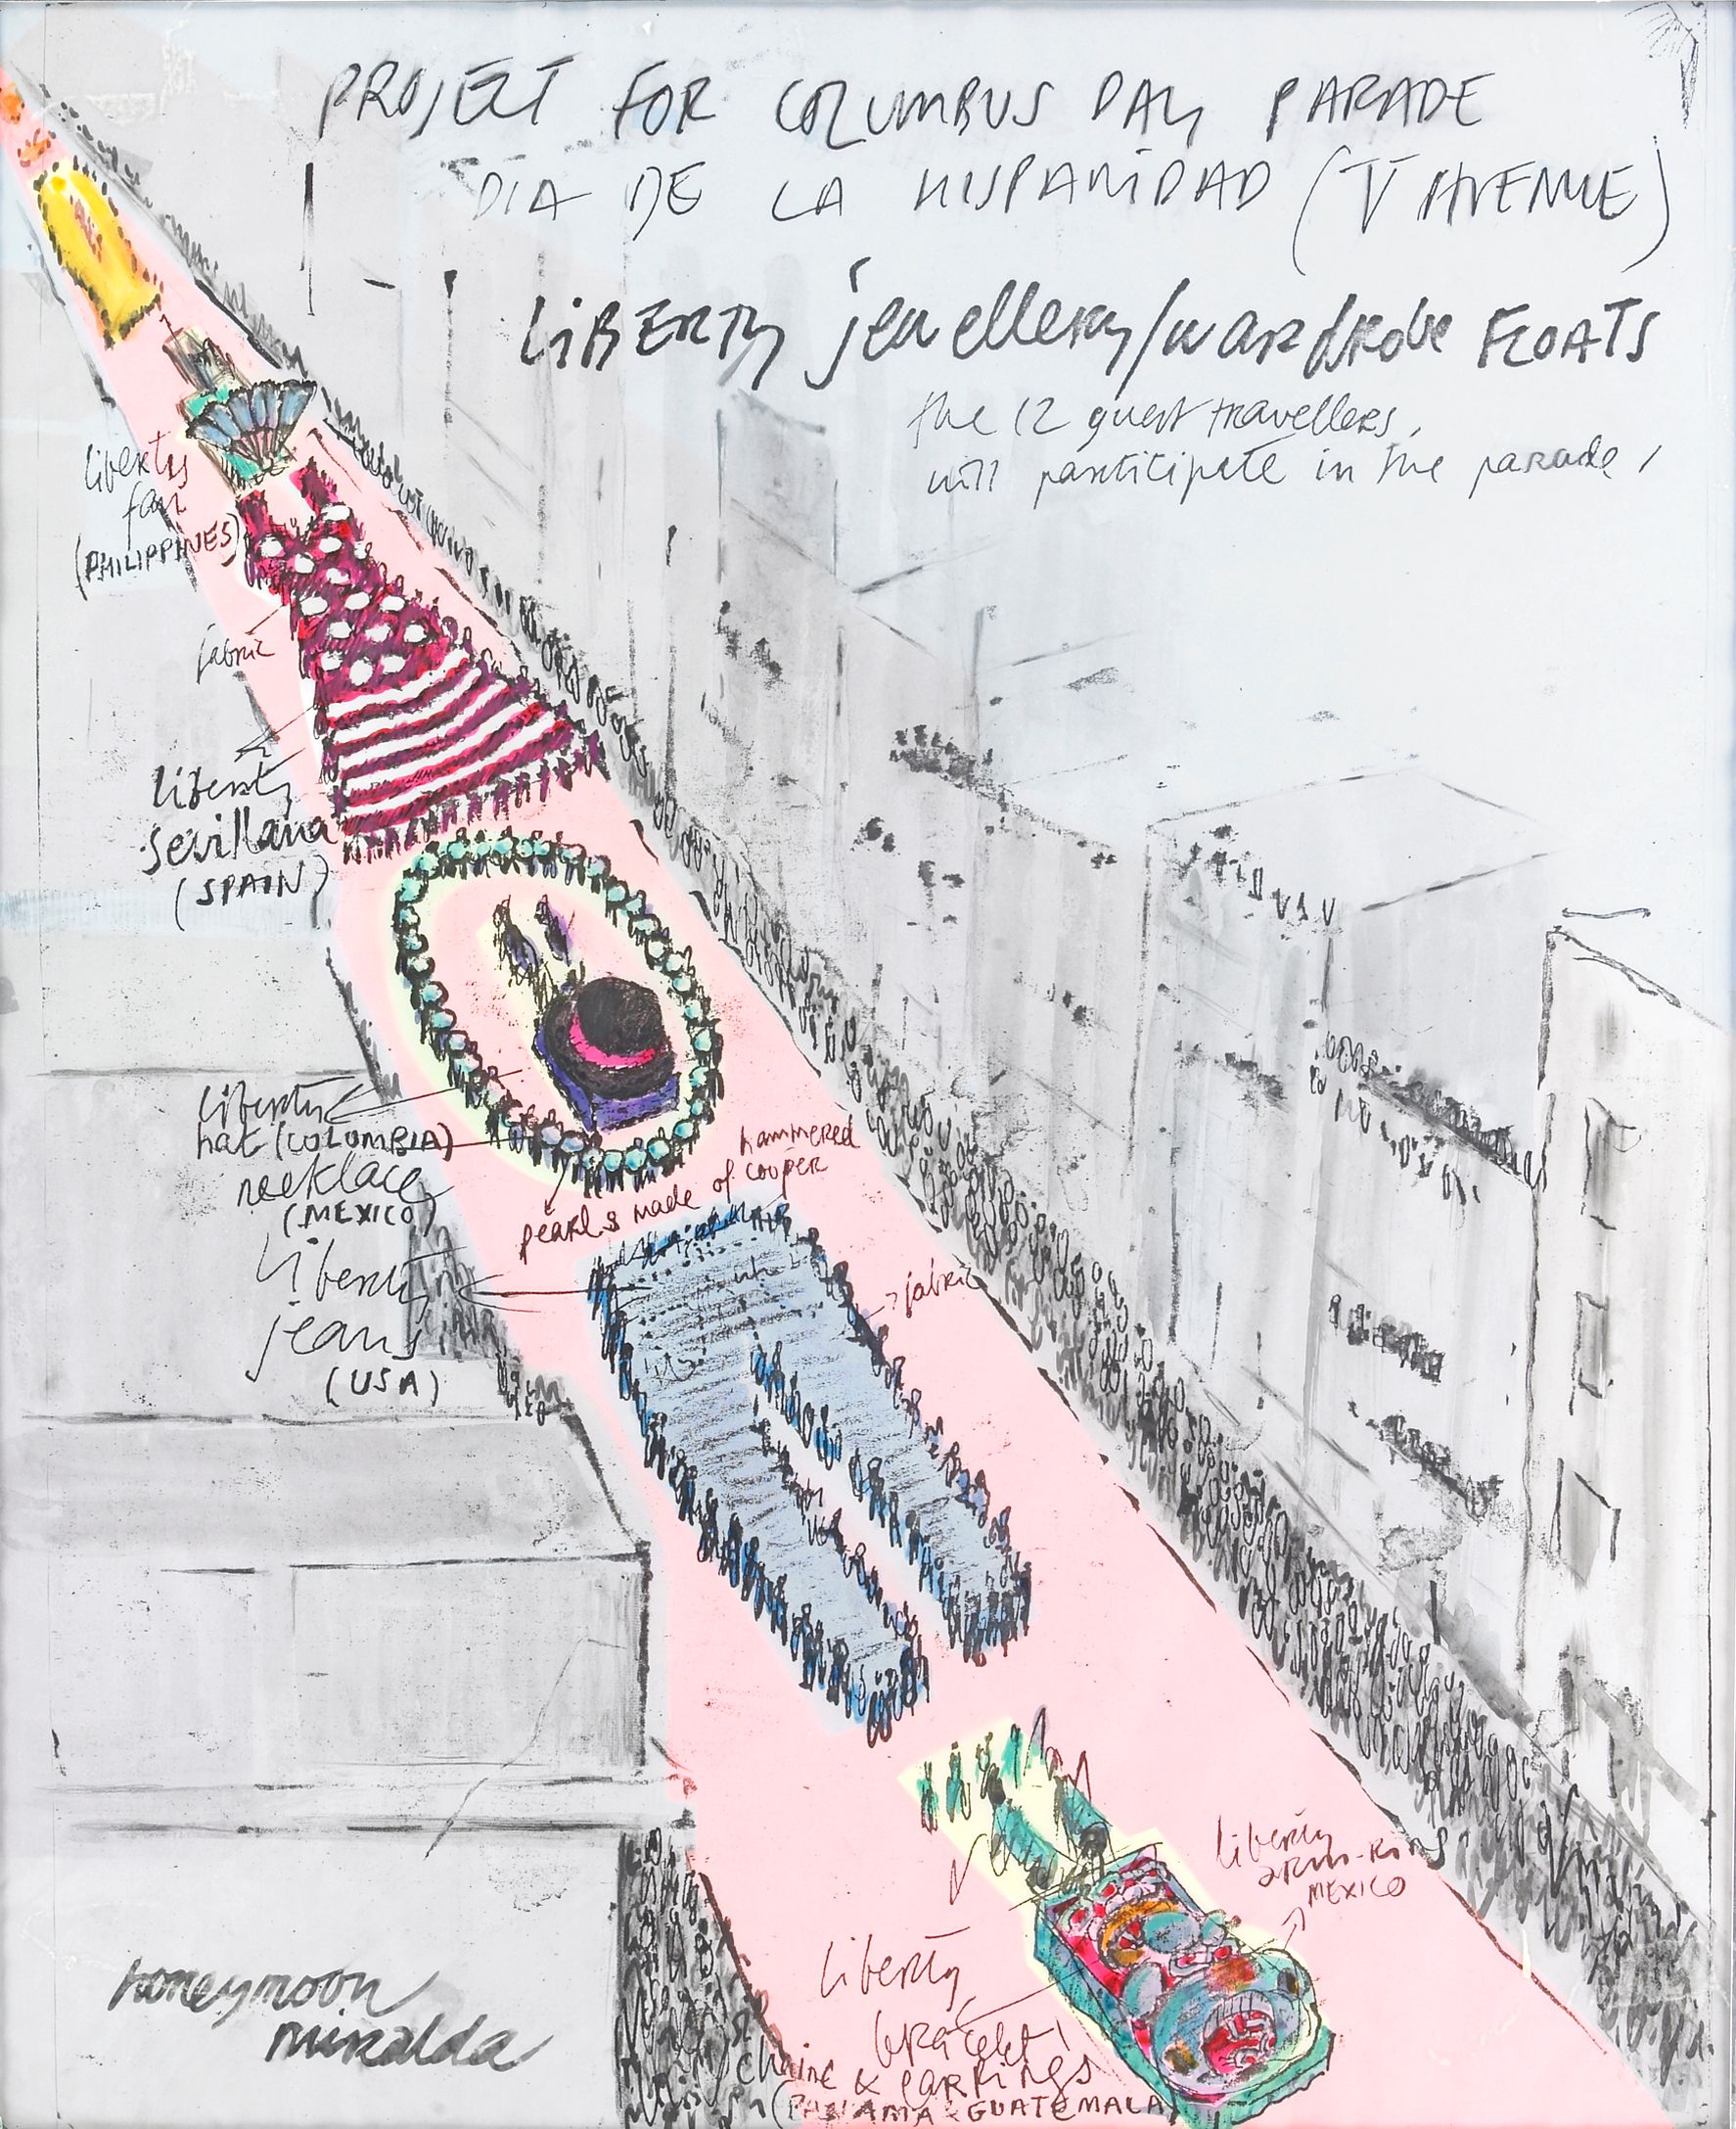 PROJECT FOR COLUMBUS DAY PARADE
DIA DE LA HISPANIDAD (V AVENUE)
LIBERTY jewellery/wardrobe FLOATS
the 12 guest travellers,
will participate in the parade,
libertys
fan
(PHILIPPINES)
fabric
liberty
sevillana
(SPAIN)
liberty
hat (COLOMBIA)
necklace
(MEXICO)
hammered
pearls made of cooper
liberty
jeans
(USA)
fabric
liberty
arm-Ring
MEXICO
liberty
bracelet
chaine & earrings
(PANAMA & GUATEMALA)
honeymoon
miralda